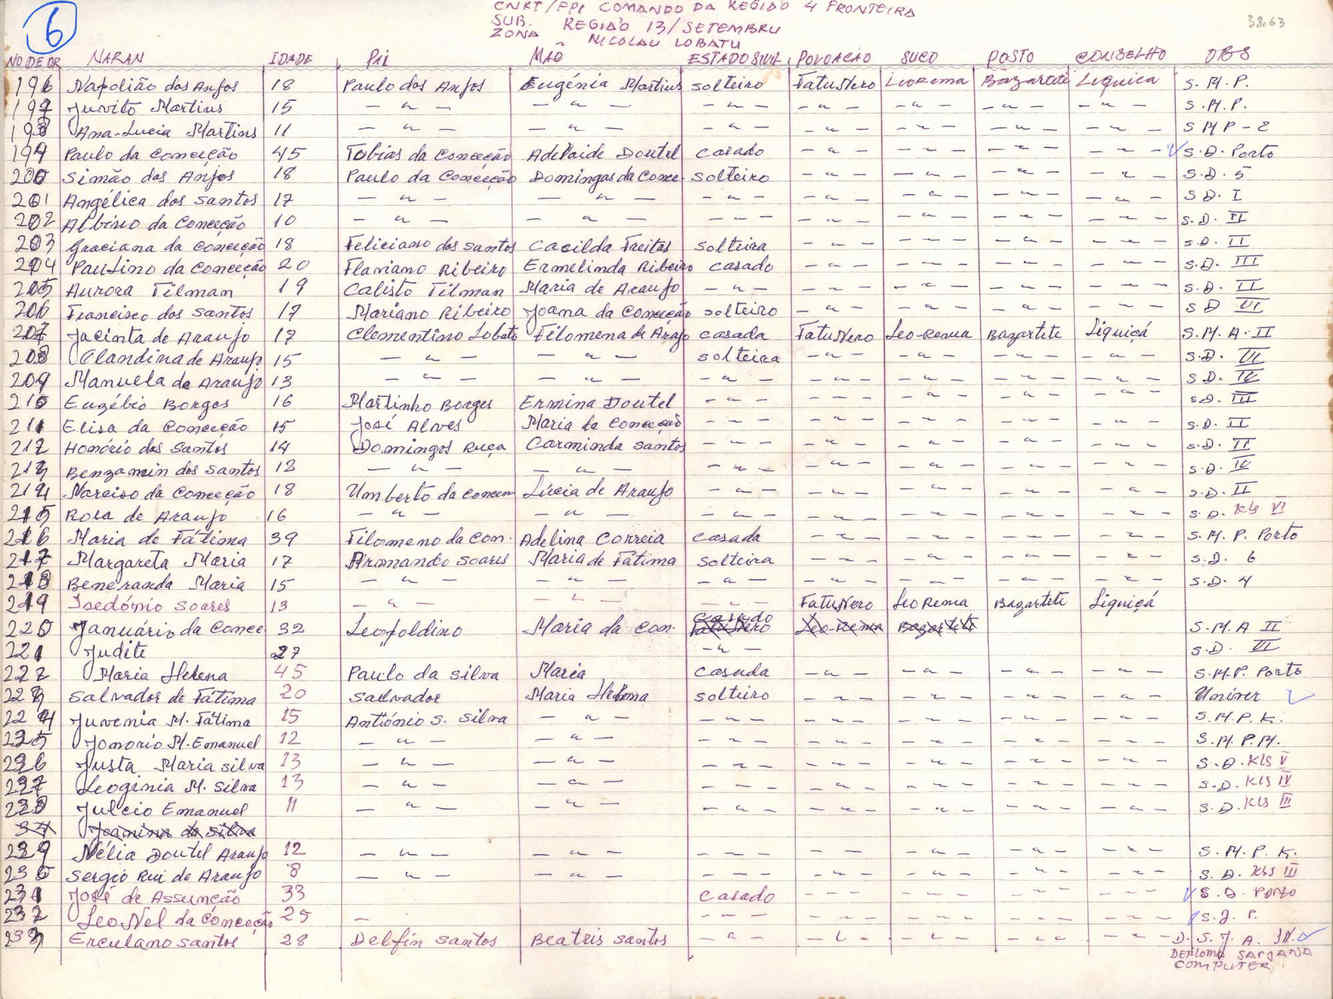 CNRT/FPI COMANDO DA REGIÃO 4 FRONTEIRA
6 SUB. REGIÃO 13/SETEMBRU 38.63
ZONA NICOLAU LOBATU
NO DE OR NARAN IDADE PAI MÃO ESTADO SIVIL POVOACAO SUCO POSTO CONSELHO OBS
196 Napolião dos Anjos 18 Paulo dos Anjos Eugénia Martins solteiro FatuNero LeoRema Bazartete Liquica S.M.P.
197 Juvito Martins 15 — " — — " — — " — — " — — " — — " — — " — S.M.P.
198 Ana-Lucia Martins 11 — " — — " — — " — — " — — " — — " — — " — S M P - 2
199 Paulo da Conceição 45 Tobias da Conceição Adelaide Doutel casado — " — — " — — " — — " — S.D. Porto
200 Simão dos Anjos 18 Paulo da Conceição Domingas da Conce. solteiro — " — — " — — " — — " — S.D. 5
201 Angélica dos Santos 17 — " — — " — — " — — " — — " — — " — — " — S.D. I
202 Albino da Conceição 10 — " — — " — — " — — " — — " — — " — — " — S.D. II
203 Graciana da Conceição 18 Feliciano dos Santos Cacilda Freitas solteira — " — — " — — " — — " — S.D. II
204 Paulino da Conceição 20 Flaviano Ribeiro Ermelinda Ribeiro casado — " — — " — — " — — " — S.D. III
205 Aurora Tilman 19 Calisto Tilman Maria de Araujo — " — — " — — " — — " — — " — S.D. II
206 Francisco dos Santos 17 Mariano Ribeiro Joana da Conceição solteiro — " — — " — — " — — " — S D VI
207 Jacinta de Araujo 17 Clementino Lobato Filomena de Arajo casada FatuNero Leo-Rema Bazartete Liquiçá S.M.A-II
208 Clandina de Araujo 15 — " — — " — solteira — " — — " — — " — — " — S.D. VI
209 Manuela de Araujo 13 — " — — " — — " — — " — — " — — " — — " — S.D. IV
210 Eugébio Borges 16 Martinho Borges Ermina Doutel — " — — " — — " — — " — — " — S.D. III
211 Elisa da Conceição 15 José Alves Maria da Conceição — " — — " — — " — — " — — " — S.D. II
212 Honório dos Santos 14 Domingos Ruça Carminda Santos — " — — " — — " — — " — — " — S.D. II
213 Benzamin dos Santos 12 — " — — " — — " — — " — — " — — " — — " — S.D. IV
214 Narciso da Conceição 18 Umberto da Concen Lúcia de Araujo — " — — " — — " — — " — — " — S.D. II
215 Rosa de Araujo 16 — " — — " — — " — — " — — " — — " — — " — S.D. Kls VI
216 Maria de Fátima 39 Filomeno da Con. Adelina Correia casada — " — — " — — " — — " — S.M.P. Porto
217 Margareta Maria 17 Armando Soares Maria de Fátima Solteira — " — — " — — " — — " — S.D. 6
218 Beneranda Maria 15 — " — — " — — " — — " — — " — — " — — " — S.D. 4
219 Isedónio Soares 13 — " — — " — — " — FatuNero LeoRema Bazartete Liquiçá
220 Januário da Concei 32 Leopoldino Maria da Con. casado S.M.A II
221 Judite 27 — " — S.D. III
222 Maria Helena 45 Paulo da Silva Maria casada — " — — " — — " — — " — S.M.P. Porto
223 Salvador de Fátima 20 Salvador Maria Helena solteiro — " — — " — — " — — " —
224 Juvenia M. Fátima 15 António S. Silva — " — — " — — " — — " — — " — — " — S.M.P.K.
225 Jonorio M. Emanuel 12 — " — — " — — " — — " — — " — — " — — " — S.M.P.M.
226 Justa Maria Silva 13 — " — — " — — " — — " — — " — — " — — " — S.D. Kls V
227 Leogenia M. Silva 13 — " — — " — — " — — " — — " — — " — — " — S.D. Kls IV
228 Julcio Emanuel 11 — " — — " — — " — — " — — " — — " — — " — S.D. Kls III
229 Nélia Doutel Araujo 12 — " — — " — — " — — " — — " — — " — — " — S.M.P.K.
230 Sergio Rui de Araujo 8 — " — — " — — " — — " — — " — — " — — " — S.D. Kls III
231 José de Assunção 33 casado — " — — " — — " — — " — S.D. Porto
232 LeoNel da Conceição 25 — — " — — " — — " — — " — — " — S.J.P.
233 Erculano Santos 28 Delfin Santos Beatris Santos — " — — " — — " — — " — — " — D.S.J.A.
DEPLOMA SARJANA
COMPUTER